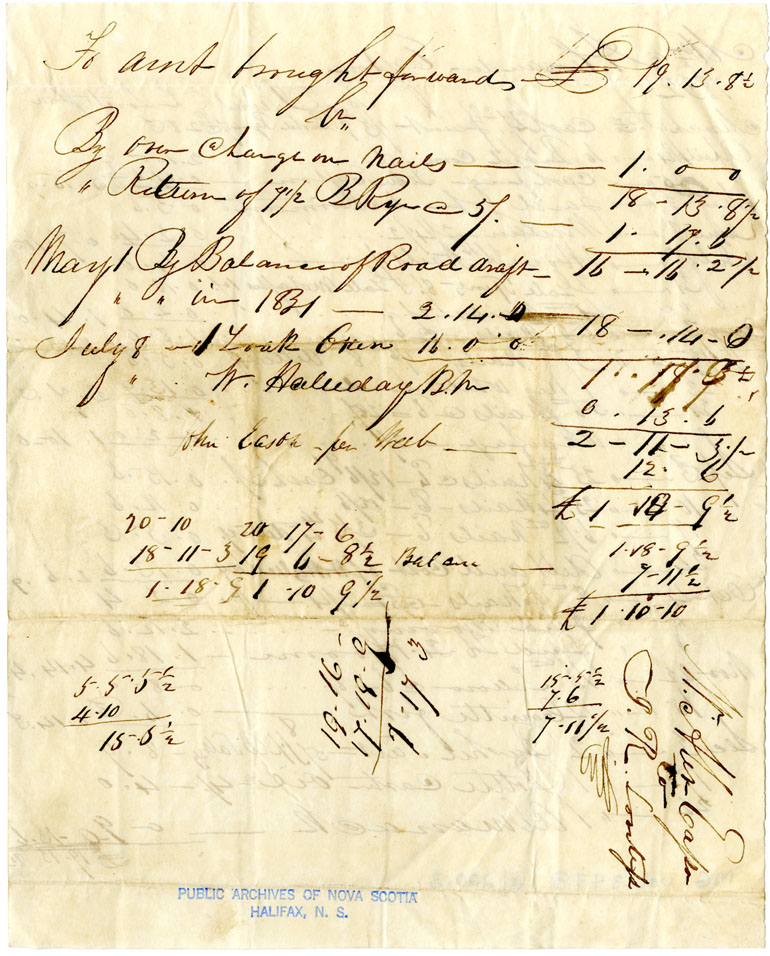 To amt brought forwards £ 19. 13. 8½
By over Charge on Nails — — 1. 0 - 0
18 - 13. 8½
" Return of 7½ B Rye @ 5/. — 1. 17. 6
May 1 By Balance of Road draft 16 - 16. 2½
" " in 1831 — 2. 14. 0
July 8 - 1 Yoak Oxen 16. 0. 0 18 - . 14 - 0
1. 17. 9½
" W. Haleday B.M 0. 13. 6
2 - 11 - 3½
John Eason - per Webb — 12. 6
£ 1 18 - 9½
20 - 10 20 17 - 6
18 - 11 - 3 19 6 - 8½ Balance — 1. 18 - 9½
1. 18 - 9 1 - 10 9½ 7 - 11½
£ 1. 10 - 10
5. 5. 5½
4 - 10
15 - 5½
16 - 16 -
1 - 17 - 6
15 - 5½
7. 6
7 - 11½
PUBLIC ARCHIVES OF NOVA SCOTIA
HALIFAX, N. S.